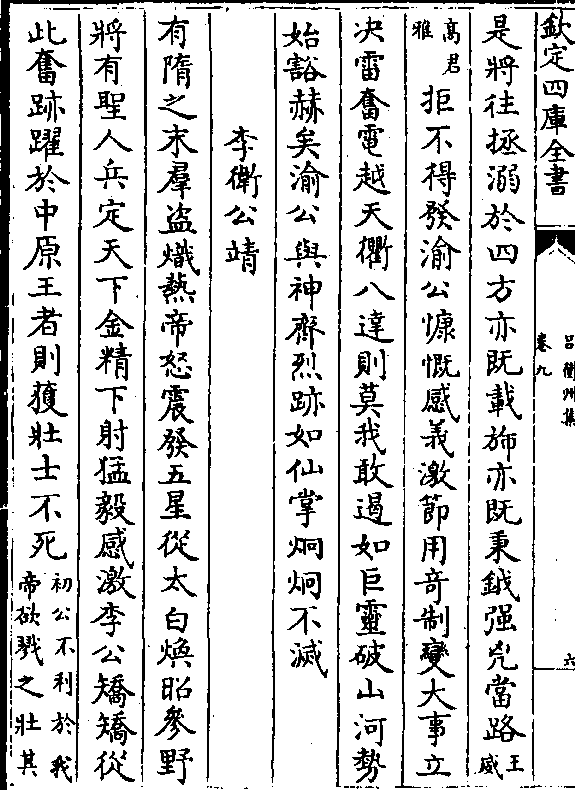 欽定四庫全書
呂衡州集
卷九
六
是將往拯溺於四方亦既載斾亦既秉鉞强兇當路王威
高君雅拒不得發渝公慷慨感義激節用竒制變大事立
决雷奮電越天衢八達則莫我敢遏如巨靈破山河勢
始豁赫矣渝公與神齊烈跡如仙掌炯炯不滅
李衛公靖
有隋之末羣盜熾熱帝怒震發五星從太白煥昭參野
將有聖人兵定天下金精下射猛毅感激李公矯矯從
此奮跡躍於中原王者則獲壯士不死初公不利於我帝欲戮之壯其